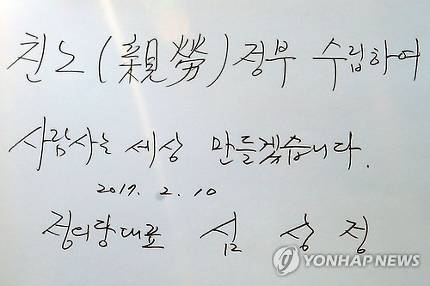 친노(親勞)정부 수립하여
사람사는 세상 만들겠습니다.
2017. 2. 10
정의당대표 심 상 정
YONHAP NEWS